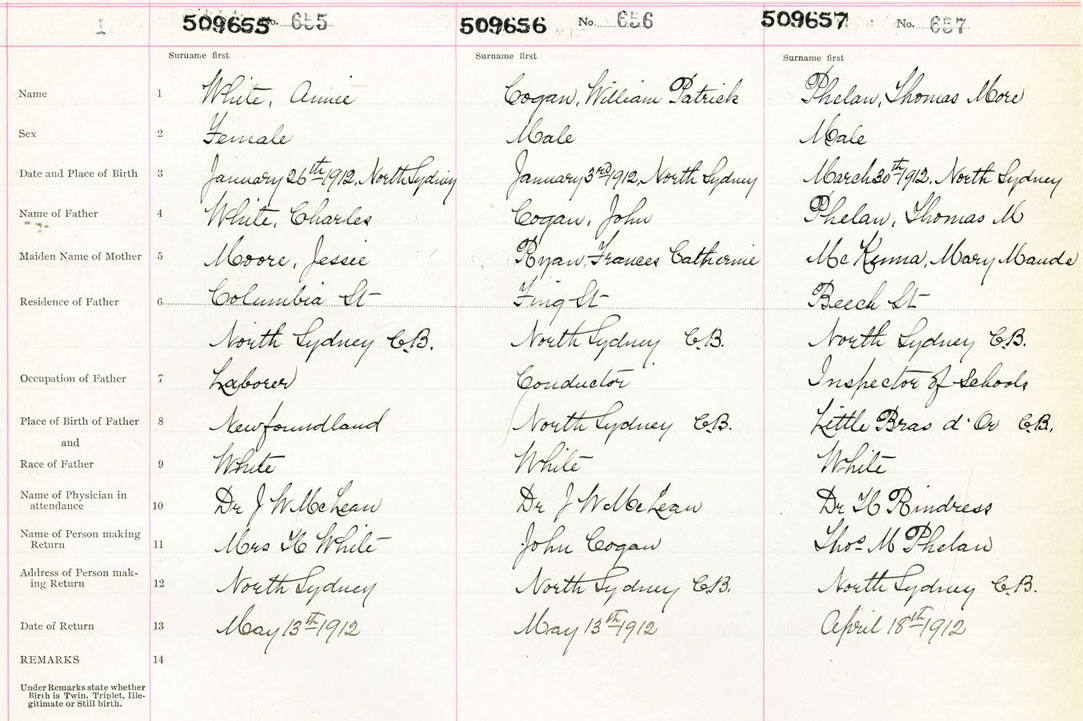 1 509655 No. 655 509656 No. 656 509657 No. 657
Surname first Surname first Surname first
Name 1 White, Annie Cogan, William Patrick Phelan, Thomas More
Sex 2 Female Male Male
Date and Place of Birth 3 January 26th 1912, North Sydney January 3rd 1912, North Sydney March 30th 1912, North Sydney
Name of Father 4 White, Charles Cogan, John Phelan, Thomas M
Maiden Name of Mother 5 Moore, Jessie Ryan, Frances Catherine McKinna, Mary Maude
Residence of Father 6 Columbia St St Beech St
North Sydney C.B. North Sydney C.B. North Sydney C.B.
Occupation of Father 7 Laborer Conductor Inspector of Schools
Place of Birth of Father 8 Newfoundland North Sydney C.B. Little Bras d'Or C.B.
and
Race of Father 9 White White White
Name of Physician in
attendance 10 Dr J W McLean Dr J W McLean Dr H Rindress
Name of Person making
Return 11 Mrs H White John Cogan Thos M Phelan
Address of Person mak-
ing Return 12 North Sydney North Sydney C.B. North Sydney C.B.
Date of Return 13 May 13th 1912 May 13th 1912 April 18th 1912
REMARKS 14
Under Remarks state whether
Birth is Twin, Triplet, Ille-
gitimate or Still birth.